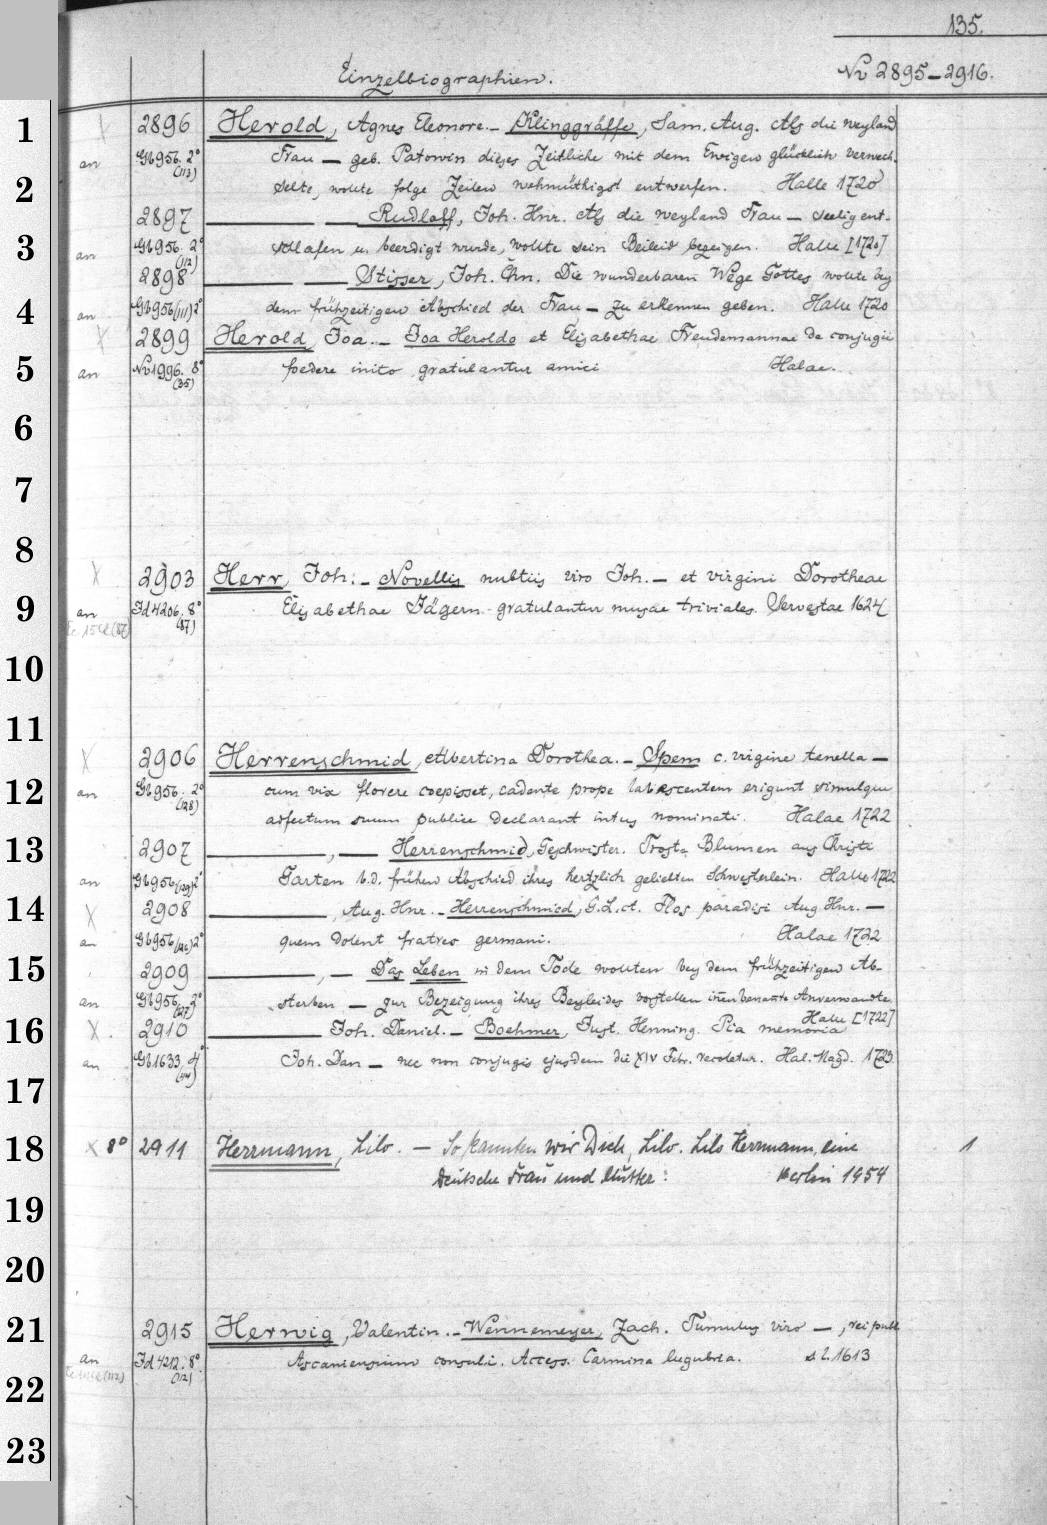 135.
Einzelbiographien.
No 2895-2916.
1
2896 Herold, Agnes Eleonore. - Klinggräffe, Sam. Aug. Als die weyland
an Gb 956. 2° (113) Frau — geb. Patowin dieses Zeitliche mit dem Ewigen glücklich verwech-
2
selte, wollte folge Zeilen wehmüthigst entwerfen. Halle 1720
2897 — — Rudloff, Joh. Hnr. Als die weyland Frau — seelig ent-
3
an Gb 956. 2° (112) schlafen u. beerdigt wurde, wollte sein Beileid bezeigen. Halle [1720]
2898 — — Stisser, Joh. Chn. Die wunderbaren Wege Gottes wollte bey
4
an Gb 956 (111) 2° dem frühzeitigen Abschied der Frau — zu erkennen geben. Halle 1720
2899 Herold, Joa. - Joa Heroldo et Elisabethae Freudemannae de conjugii
5
an No 1996. 8° (35) foedere inito gratulantur amici Halae.
6
7
8
2903 Herr, Joh: - Novellis nubtiis viro Joh. — et virgini Dorotheae
9
an Id 4206. 8° (87) Elisabethae Jägern gratulantur musae triviales. Servestae 1624
10
11
2906 Herrenschmid, Albertina Dorothea. - Spem c. virgine tenella —
12
an Gb 956. 2° (128) cum vix florere coepisset, cadente prope labascentem erigunt simulque
adfectum suum publice declarant intus nominati. Halae 1722
13
2907 —, — Herrenschmid, Geschwister. Trost-Blumen aus Christi
an Gb 956 (129) 2° Garten b. d. frühen Abschied ihres hertzlich geliebten Schwesterlein. Halle 1722
14
2908 —, Aug. Hnr. - Herrenschmied, G. L. ct. Flos paradisi Aug Hnr. —
an Gb 956 (126) 2° quem dolent fratres germani. Halae 1722
15
2909 —, — Das Leben in dem Tode wollten bey dem frühzeitigen Ab-
an Gb 956 (127) 2° sterben — zur Bezeigung ihres Beyleides vorstellen innenbenannte Anverwandte.
Halle [1722]
16
2910 — Joh. Daniel. - Boehmer, Just. Henning. Pia memoria
an Gb 1633. 4° Joh. Dan — nec non conjugis ejusdem die XIV Febr. recoletur. Hal. Magd. 1723.
17
18
X 8° 2911 Herrmann, Lilo. — So kannten wir Dich, Lilo. Lilo Herrmann, eine 1
deutsche Frau und Mutter: Berlin 1954
19
20
21
2915 Herwig, Valentin. - Wennemeyer, Zach. Tumulus viro —, reipubl
an Id 4212. 8° (112) Ascaniensium consuli. Access. Carmina lugubria. s l. 1613
22
23